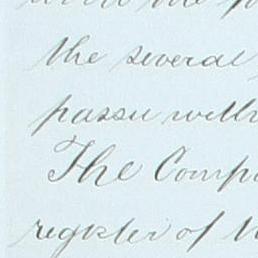 the several
passu with
The Comp
register of